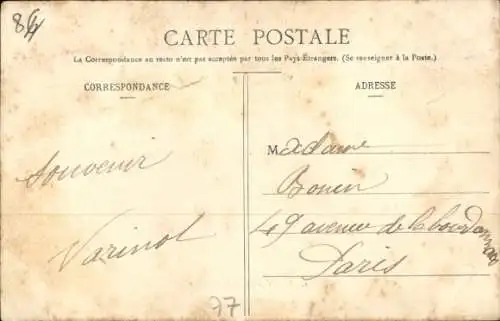 84
CARTE POSTALE
La Correspondance au recto n'est pas acceptée par tous les Pays Étrangers. (Se renseigner à la Poste.)
CORRESPONDANCE
ADRESSE
Souvenir
Varinot
Madame
Bonin
49 avenue de la bourdonnais
Paris
77